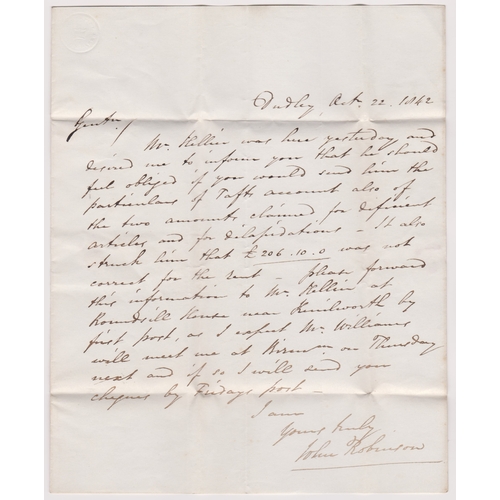 Dudley, Oct. 22. 1842
Gentn /
Mr. Kellie was here yesterday and
desired me to inform you that he should
feel obliged if you would send him the
particulars of Tafts account also of
the two amounts claimed for deficient
articles and for dilapidations - It also
struck him that £206.10.0 was not
correct for the rent - please forward
this information to Mr. Kellie at
House near Kenilworth by
first post, as I expect Mr. Williams
will meet me at on Thursday
next and if so I will send you
cheques by Fridays post -
I am
Yours truly
John Robinson